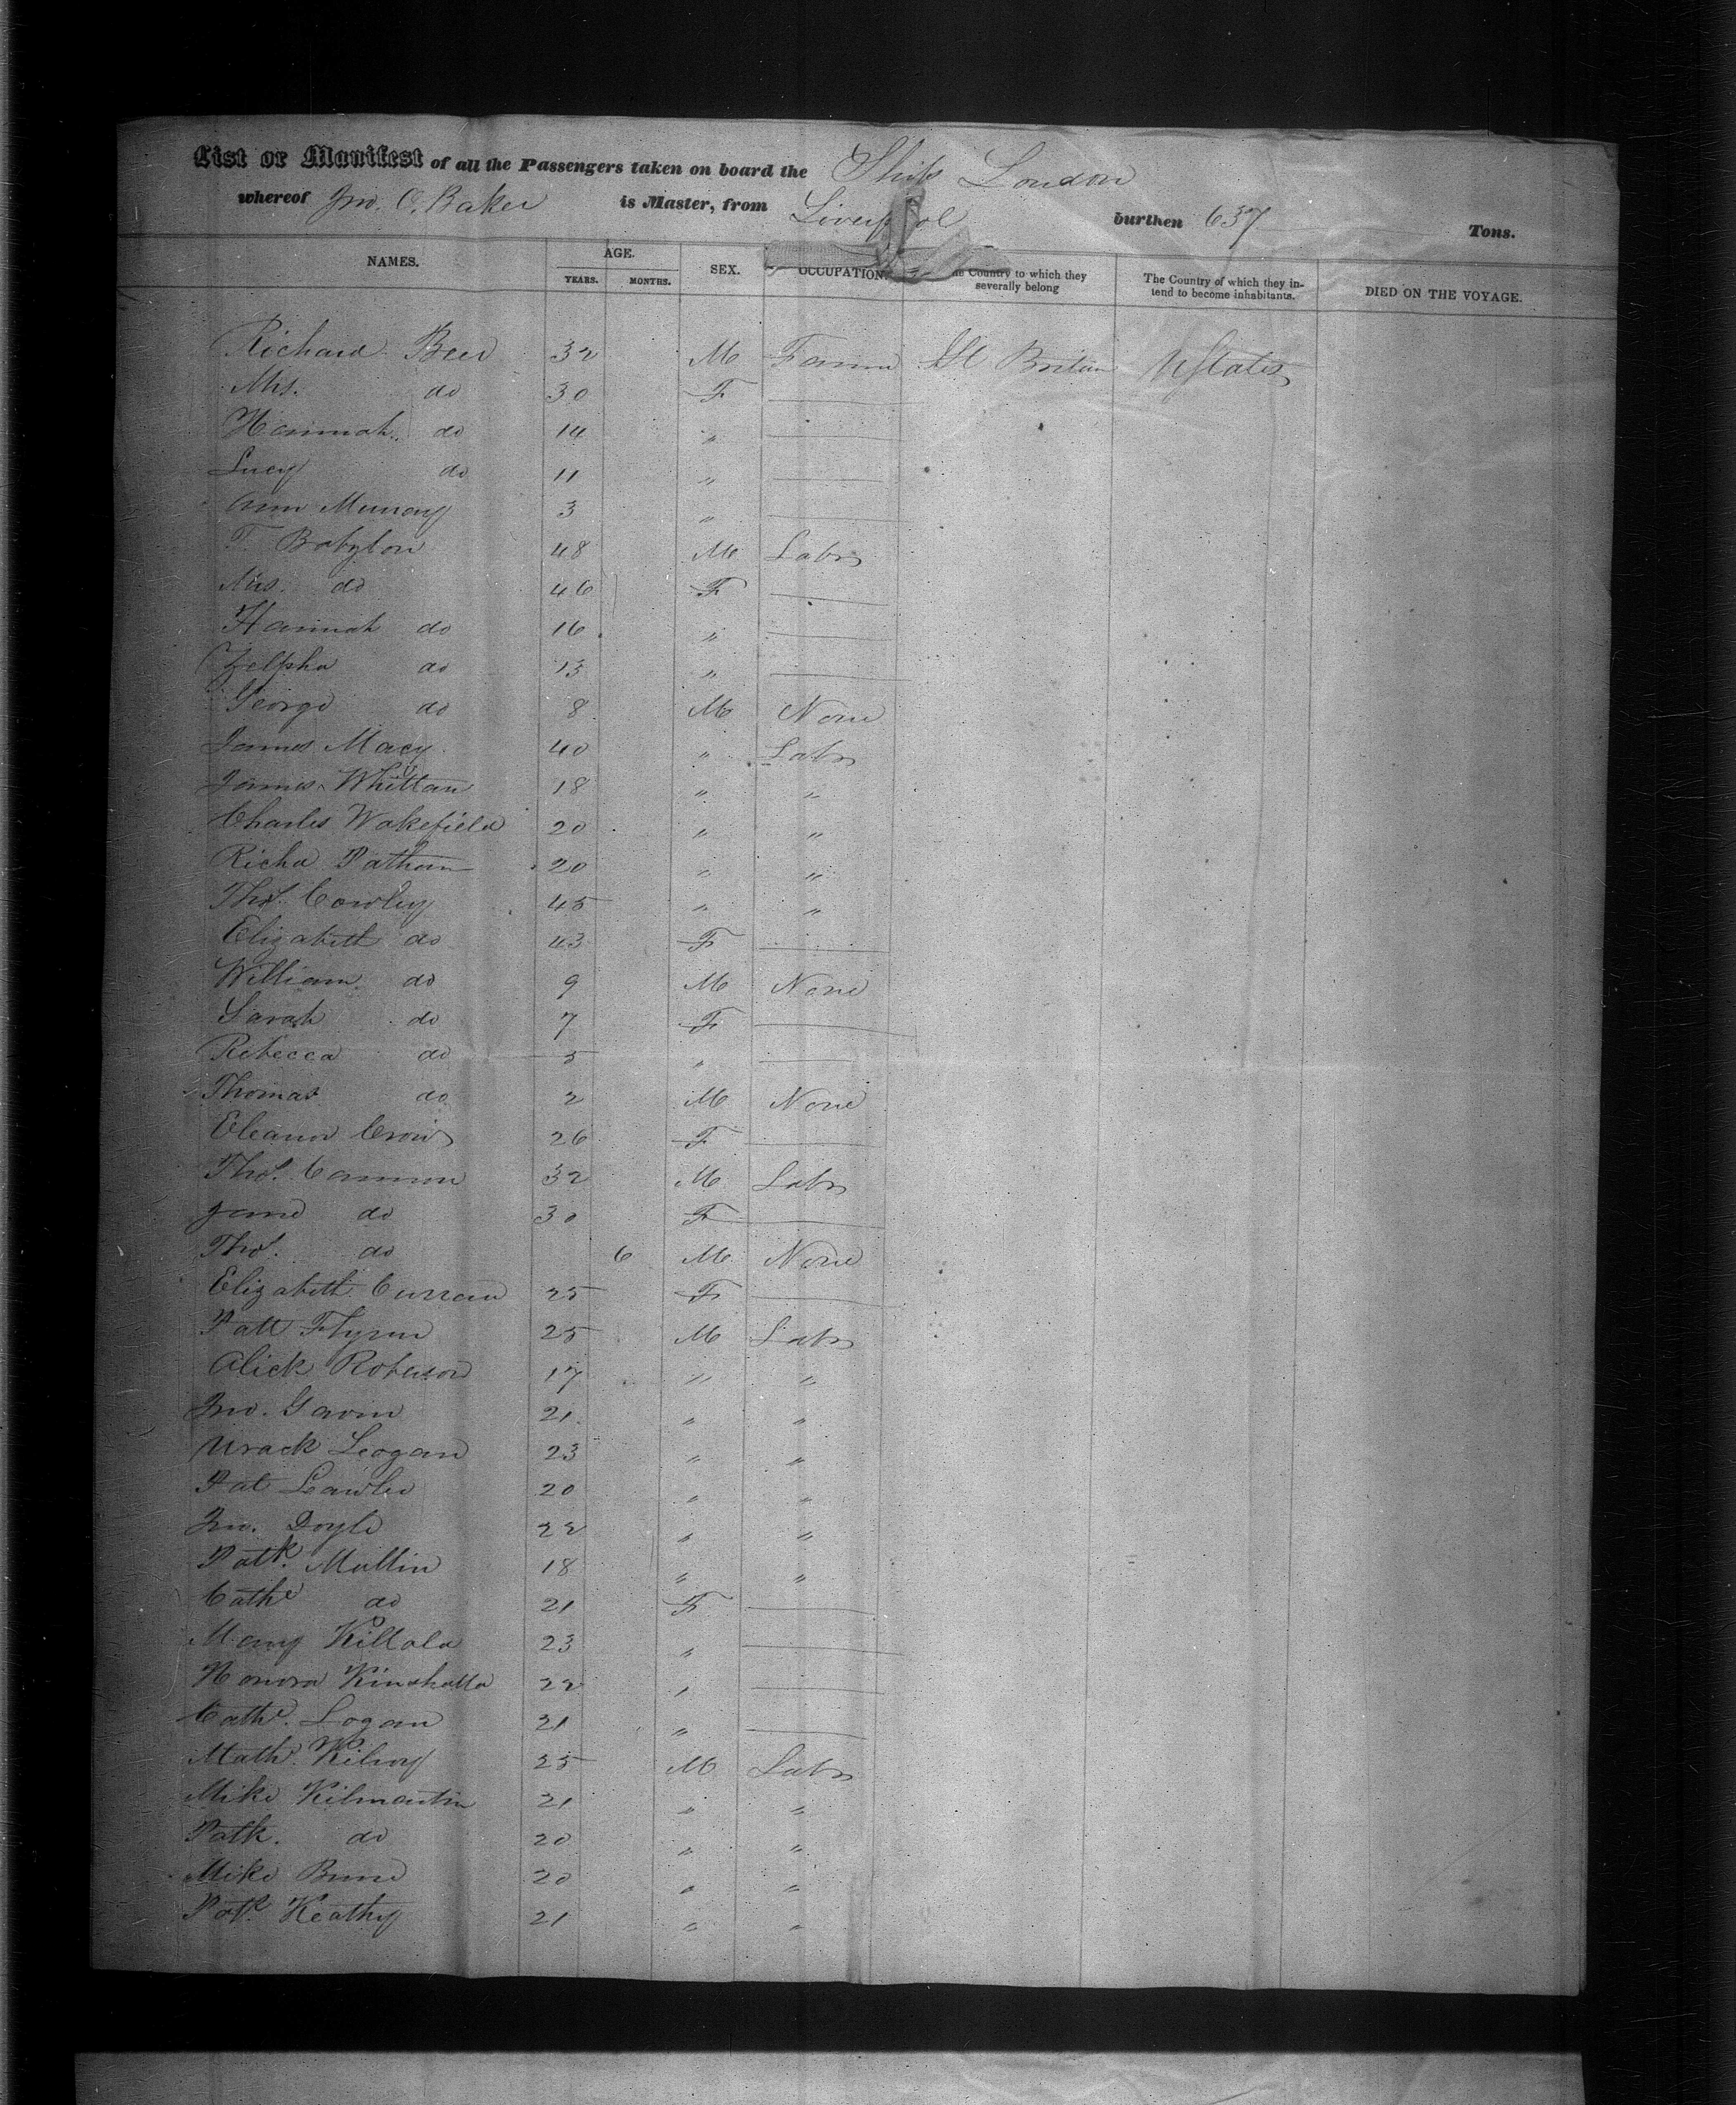 List or Manifest of all the Passengers taken on board the Ship London
whereof Jno. O. Baker is Master, from Liverpool burthen 637 Tons.
NAMES. AGE. YEARS. MONTHS. SEX. OCCUPATION. Country to which they severally belong The Country of which they intend to become inhabitants. DIED ON THE VOYAGE.
Richard 32 M Farmer Gt Britain U States
Mrs. do 30 F
Hannah do 14 "
Lucy do 11 "
Ann Murray 3 "
T. Babylon 48 M Labr
Mrs. do 46 F
Hannah do 16 "
Zelpha do 13 "
George do 8 M None
James Macy 40 " Labr
James Whittan 18 " "
Charles Wakefield 20 " "
Richd 20 " "
Thos. Cowley 45 " "
Elizabeth do 43 F
William do 9 M None
Sarah do 7 F
Rebecca do 5 "
Thomas do 2 M None
Eleanor 26 F
Thos. Cannon 32 M Labr
Jane do 30 F
Thos. do 6 M None
Elizabeth Curran 25 F
Patt Flynn 25 M Labr
Alick Roberson 17 " "
Jno. Gavin 21 " "
Leogan 23 " "
Pat Lawler 20 " "
Jno. Doyle 22 " "
Patk. Mullin 18 " "
Cathe do 21 F
Mary Killala 23 "
Honora 22 "
Cathe. Logan 21 "
Math. Kilroy 25 M Labr
Mike Kilmartin 21 " "
Patk. do 20 " "
Mike 20 " "
Patk Keathy 21 " "